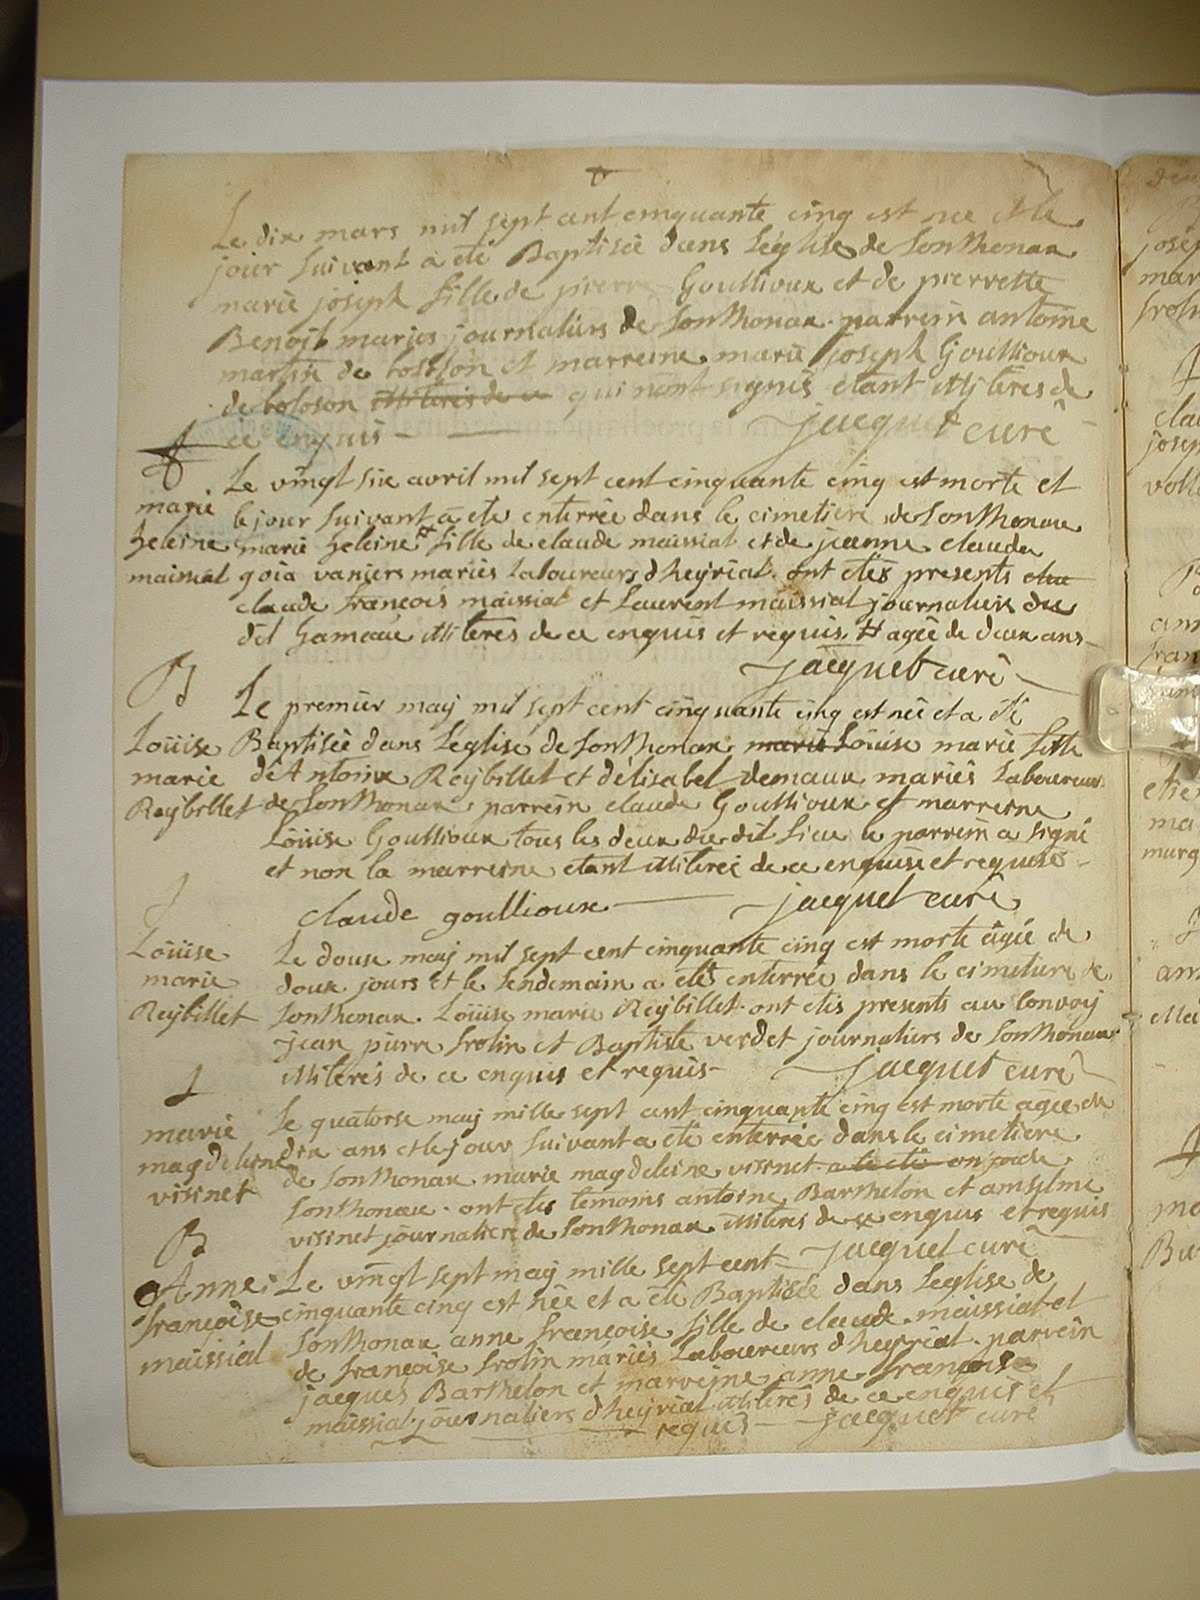 Le dix mars mil sept cent cinquante cinq est née et le
jour suivant a ete Baptisée dans Léglise de Sonthonax
marie joseph fille de pierre Goullioux et de pierrette
Benoit mariés journaliers de Sonthonax. parrein antoine
martin de et marreine marie joseph Goullioux
de boloson illiterés de ce qui n'ont signés etant illiterés de
ce enquis - jacquet curé
Le vingt six avril mil sept cent cinquante cinq est morte et
marie
le jour suivant a ete enterrée dans le cimetiere de Sonthonax
heleine marie heleine # fille de claude maissiat et de jeanne claude
maissiat goia vaniers mariés Laboureurs d'heyriat. ont étés presents
claude francois maissiat et Laurent maissiat journaliers du
dit hameau illiterés de ce enquis et requis. # agée de deux ans -
jacquet curé
B
Le premier may mil sept cent cinquante cinq est née et a été
Loüise Baptisée dans Leglise de Sonthonax marie Loüise marie fille
marie d'Antoine Reybillet et d'élisabet demaux mariés Laboureurs
Reybillet de Sonthonax. parrein claude Goullioux et marreine
Loüise Goullioux tous les deux du dit lieu le parrein a signé
et non la marreine etant illiterée de ce enquise et requise -
claude goullioux jacquet curé
Loüise Le doux may mil sept cent cinquante cinq est morte âgée de
marie doux jours et le lendemain a eté enterrée dans le cimetiere de
Reybillet Sonthonax. Loüise marie Reybillet. ont etés presents au Convoy
jean pierre frolin et Baptiste verdet journaliers de Sonthonax
illiterés de ce enquis et requis - jacquet curé
Le quatorse may mille sept cent cinquante cinq est morte agée de
marie
magdeleine dix ans et le jour suivant a eté enterrée dans le cimetiere
visinet de Sonthonax marie magdeleine visinet a eté de
Sonthonax. ont etés témoins antoine Barthelon et anselme
visinet journaliers de Sonthonax illiterés de ce enquis et requis
B jacquet curé
Anne Le vingt sept may mille sept cent
françoise cinquante cinq est née et a été Baptisée dans Leglise de
maissiat Sonthonax anne françoise fille de claude maissiat et
de françoise frolin mariés Laboureurs d'heyriat. parrein
jacques Barthelon et marreine anne françoise
maissiat journaliers d'heyriat illiterés de ce enquis et
requis - jacquet curé